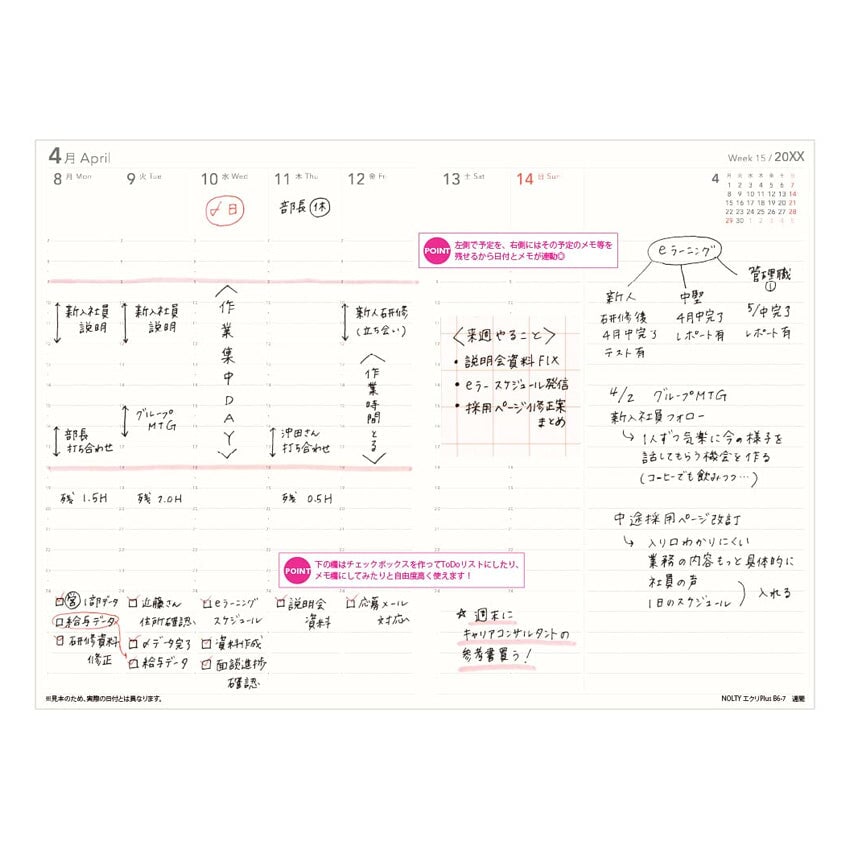 4月 April
Week 15 / 20XX
8 月 Mon
9 火 Tue
10 水 Wed
11 木 Thu
12 金 Fri
13 土 Sat
14 日 Sun
4
月 火 水 木 金 土 日
1 2 3 4 5 6 7
8 9 10 11 12 13 14
15 16 17 18 19 20 21
22 23 24 25 26 27 28
29 30
〆日
部長 休
POINT
左側で予定を、右側にはその予定のメモ等を
残せるから日付とメモが連動◎
新入社員
説明
部長
打ち合わせ
残 1.5H
新入社員
説明
グループ
MTG
残 2.0H
作業集中DAY
沖田さん
打ち合わせ
残 0.5H
新人研修
(立ち会い)
作業時間とる
〈来週やること〉
• 説明会資料FIX
• eラースケジュール発信
• 採用ページ修正案
まとめ
eラーニング
新人
研修後
4月中完了
テスト有
中堅
4月中完了
レポート有
管理職
①
5/中完了
レポート有
4/2 グループMTG
新入社員フォロー
↳ 1人ずつ気楽に今の様子を
話してもらう機会を作る
(コーヒーでも飲みつつ…)
中途採用ページ改訂
↳ 入り口わかりにくい
業務の内容もっと具体的に
社員の声
1日のスケジュール
入れる
POINT
下の欄はチェックボックスを作ってToDoリストにしたり、
メモ欄にしてみたりと自由度高く使えます!
営1部データ
給与データ
研修資料
修正
近藤さん
住所確認
〆データ完了
給与データ
eラーニング
スケジュール
資料作成
面談進捗
確認
説明会
資料
応募メール
対応
☆ 週末に
キャリアコンサルタントの
参考書買う!
※見本のため、実際の日付とは異なります。
NOLTY エクリPlus B6-7 週間